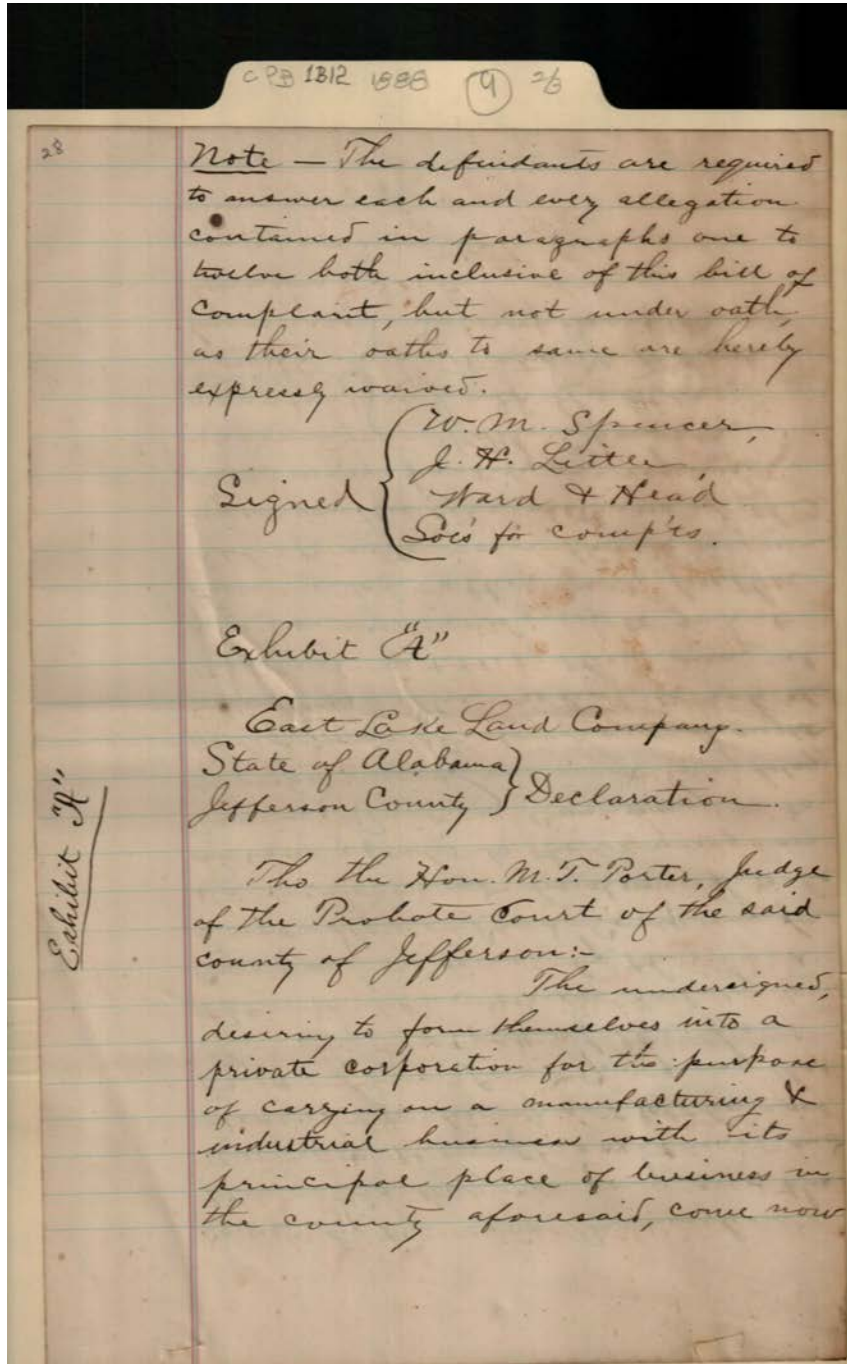 CPB 1312 1888 9 2/3
28
Note — The defendants are required
to answer each and every allegation
contained in paragraphs one to
twelve both inclusive of this bill of
complaint, but not under oath,
as their oaths to same are hereby
expressly waived.
W. M. Spencer,
J. H. Little,
Signed Ward & Head
Sol's for comp'ts.
Exhibit "A"
East Lake Land Company.
State of Alabama
Jefferson County } Declaration.
Exhibit "A"
Tho the Hon. M. T. Porter, Judge
of the Probate Court of the said
county of Jefferson:-
The undersigned,
desiring to form themselves into a
private corporation for the purpose
of carrying on a manufacturing &
industrial business with its
principal place of business in
the county aforesaid, come now